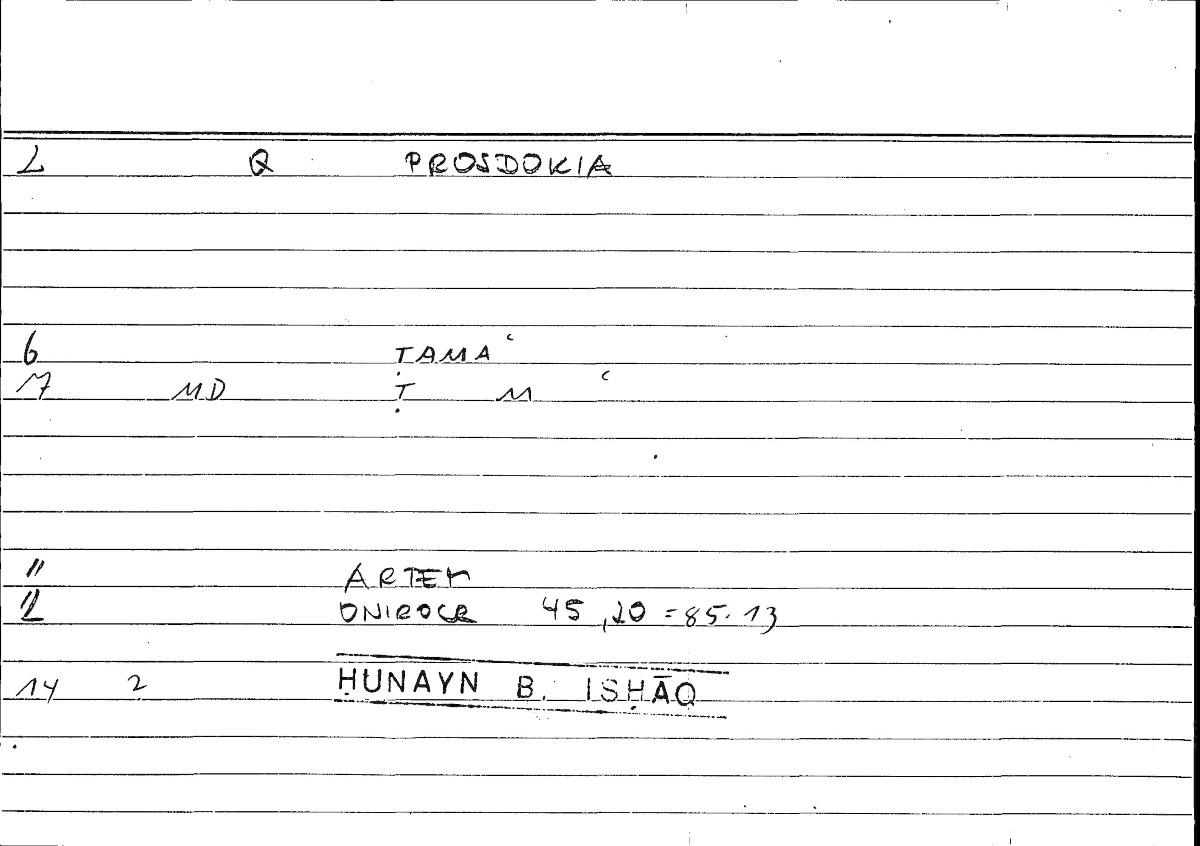 L Q PROSDOKIA
6 ṬAMAʿ
17 MD Ṭ M ʿ
11 ARTEM
12 ONIROCR 45,20 = 85.13
14 2 ḤUNAYN B. ISḤĀQ